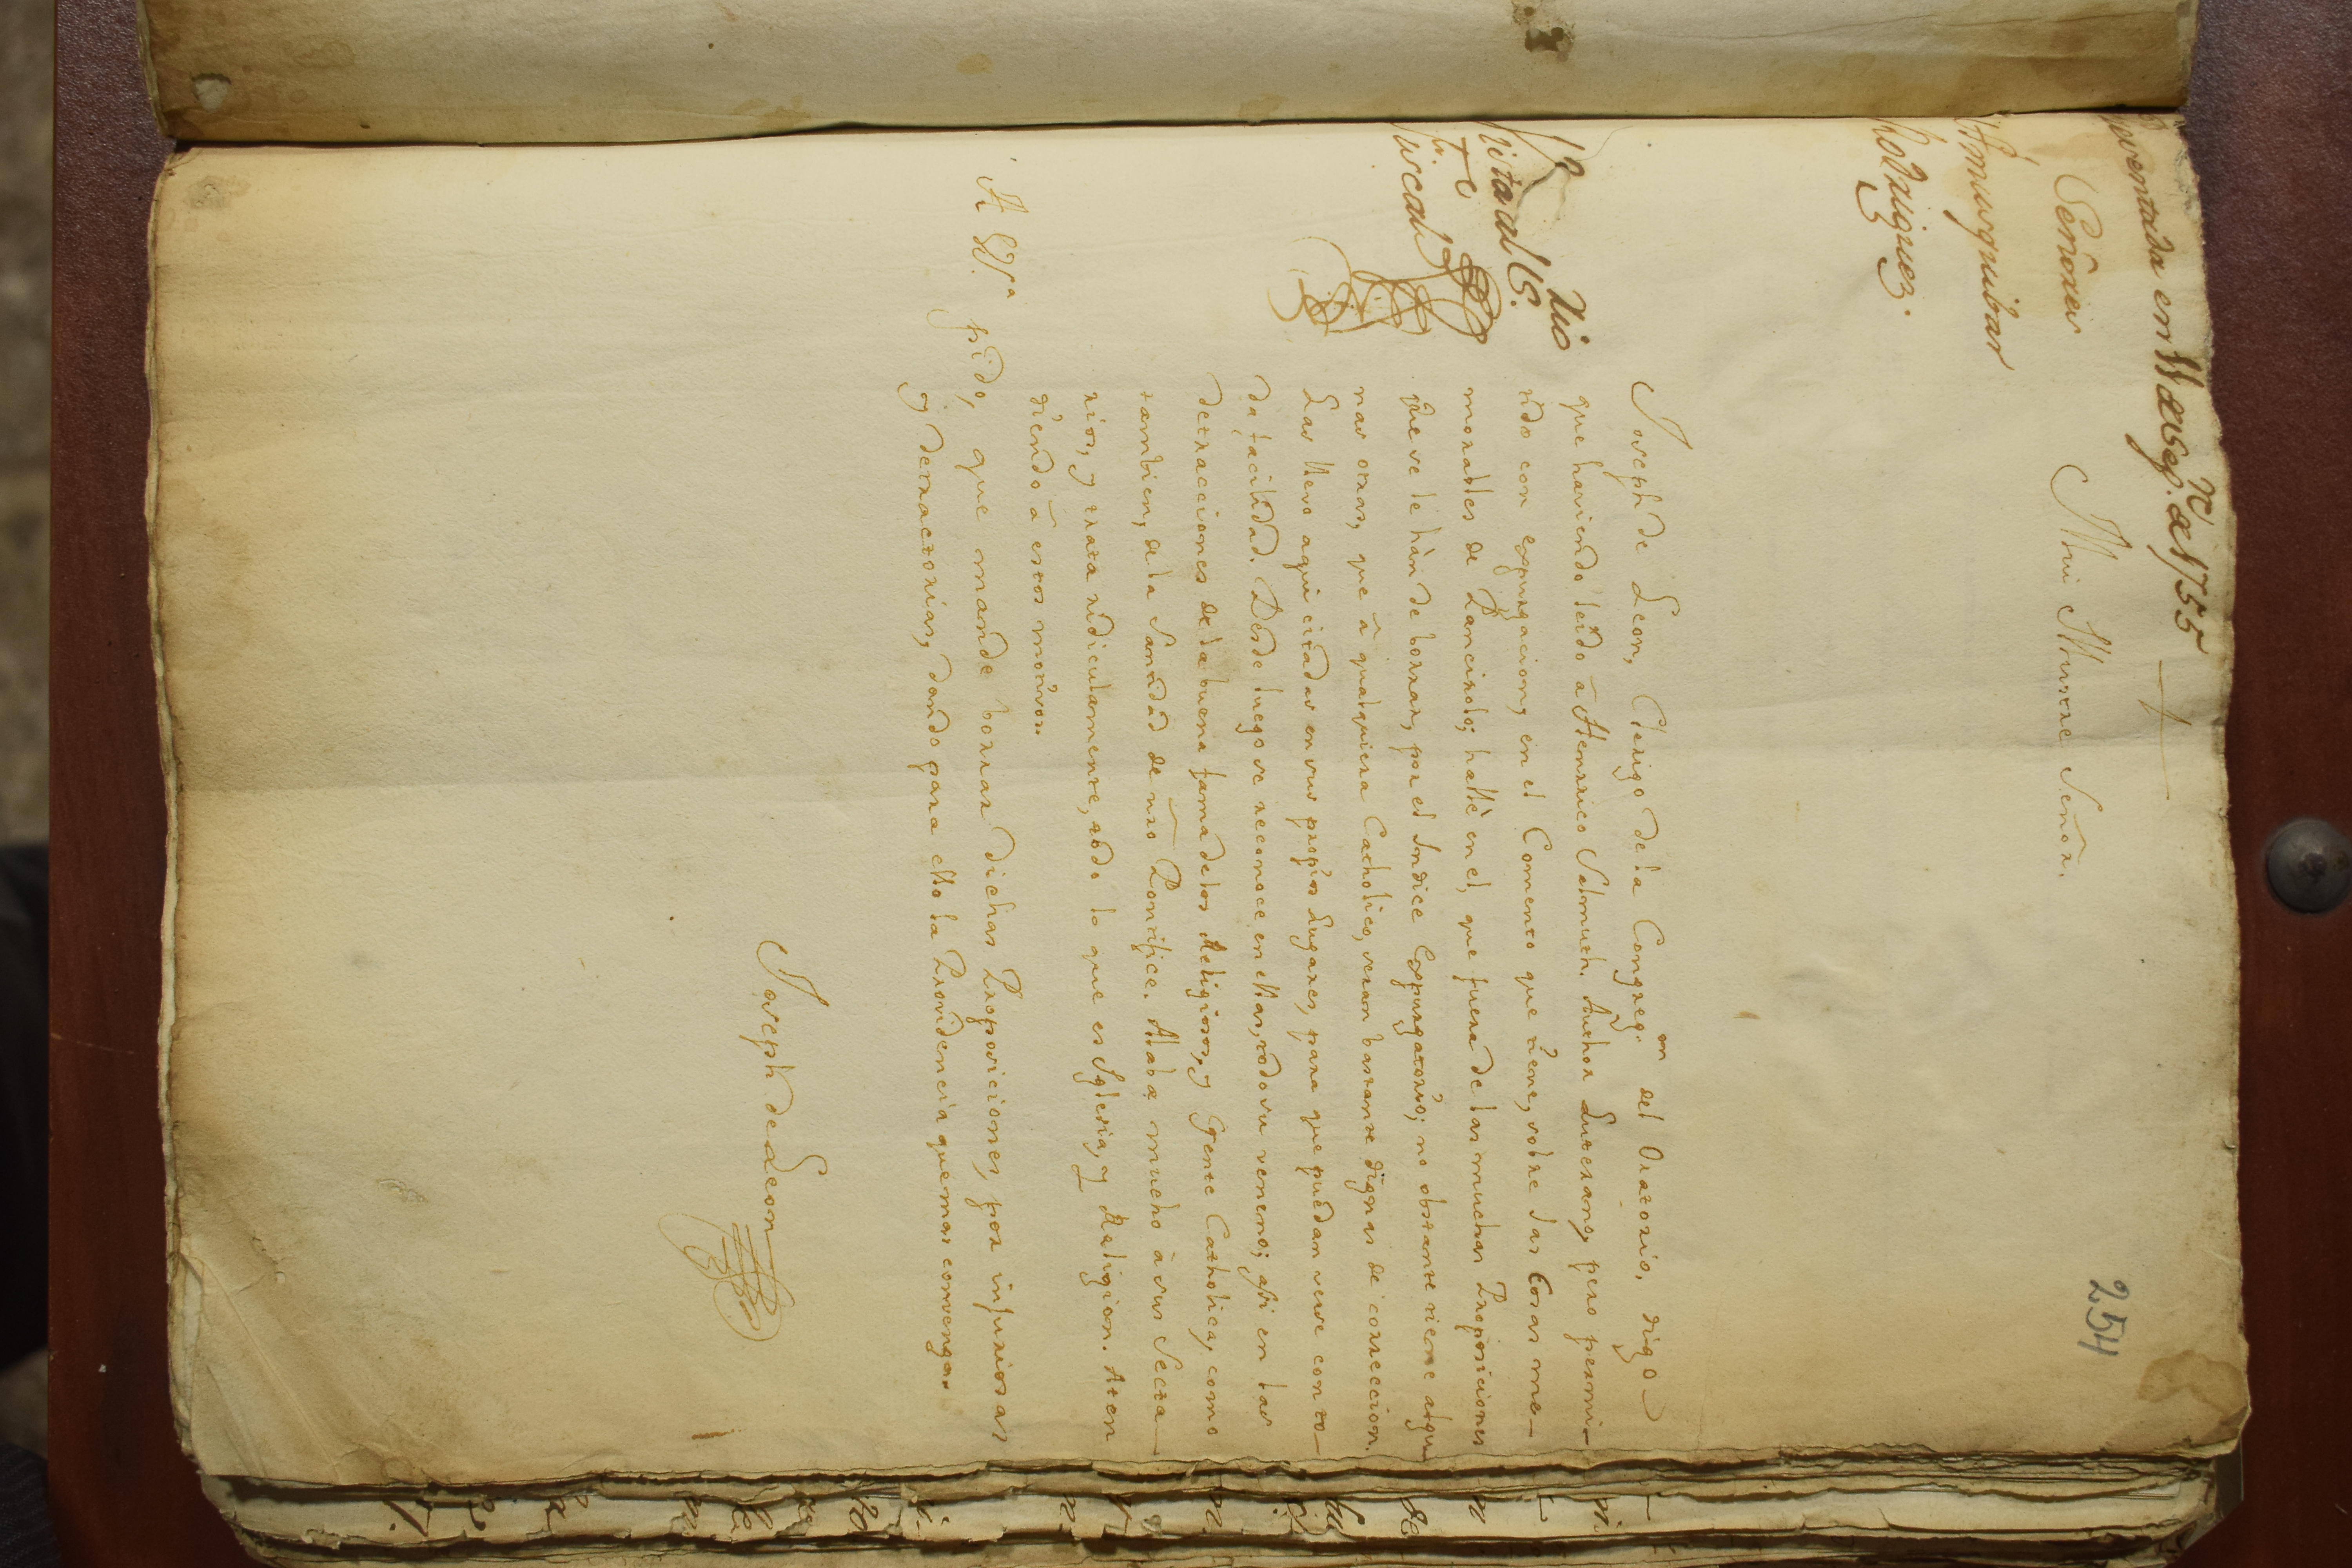 en 11 de Sep.re de 1755
254
Señores
Mui Illustre Señor.
Amusquibar
Rodriguez.
Joseph de Leon, Clerigo de la Congreg.on del Oratorio, digo
que haviendo leido â Henrrico Salmuth. Author Luterano, pero permi-
tido con expurgacion, en el Comento que tiene, sobre las Cosas me-
morables de Pancirolo; hallè en el, que fuera de las muchas Proposiciones
que se le hàn de borrar, por el Indice Expurgatorio; no obstante tiene algu
nas otras, que â qualquiera Catholico, seran bastante dignas de correccion.
Las llevo aqui citadas en sus propios Lugares, para que puedan verse con to-
da facilidad. Desde luego se reconoce en ellas, todo su veneno; assi en las
detracciones de la buena fama de los Religiosos, y Gente Catholica, como
tambien, de la Santidad de nro Pontifice. Alaba mucho â sus Secta-
rios, y trata ridiculamente, todo lo que es Iglesia, y Religion. Aten
diendo â estos motivos.
A VS.a pido, que mande borrar dichas Proposiciones, por injuriosas
y detractorias, dando para ello la Providencia que mas convenga.
Joseph de Leon
Vista al S.
Fiscal